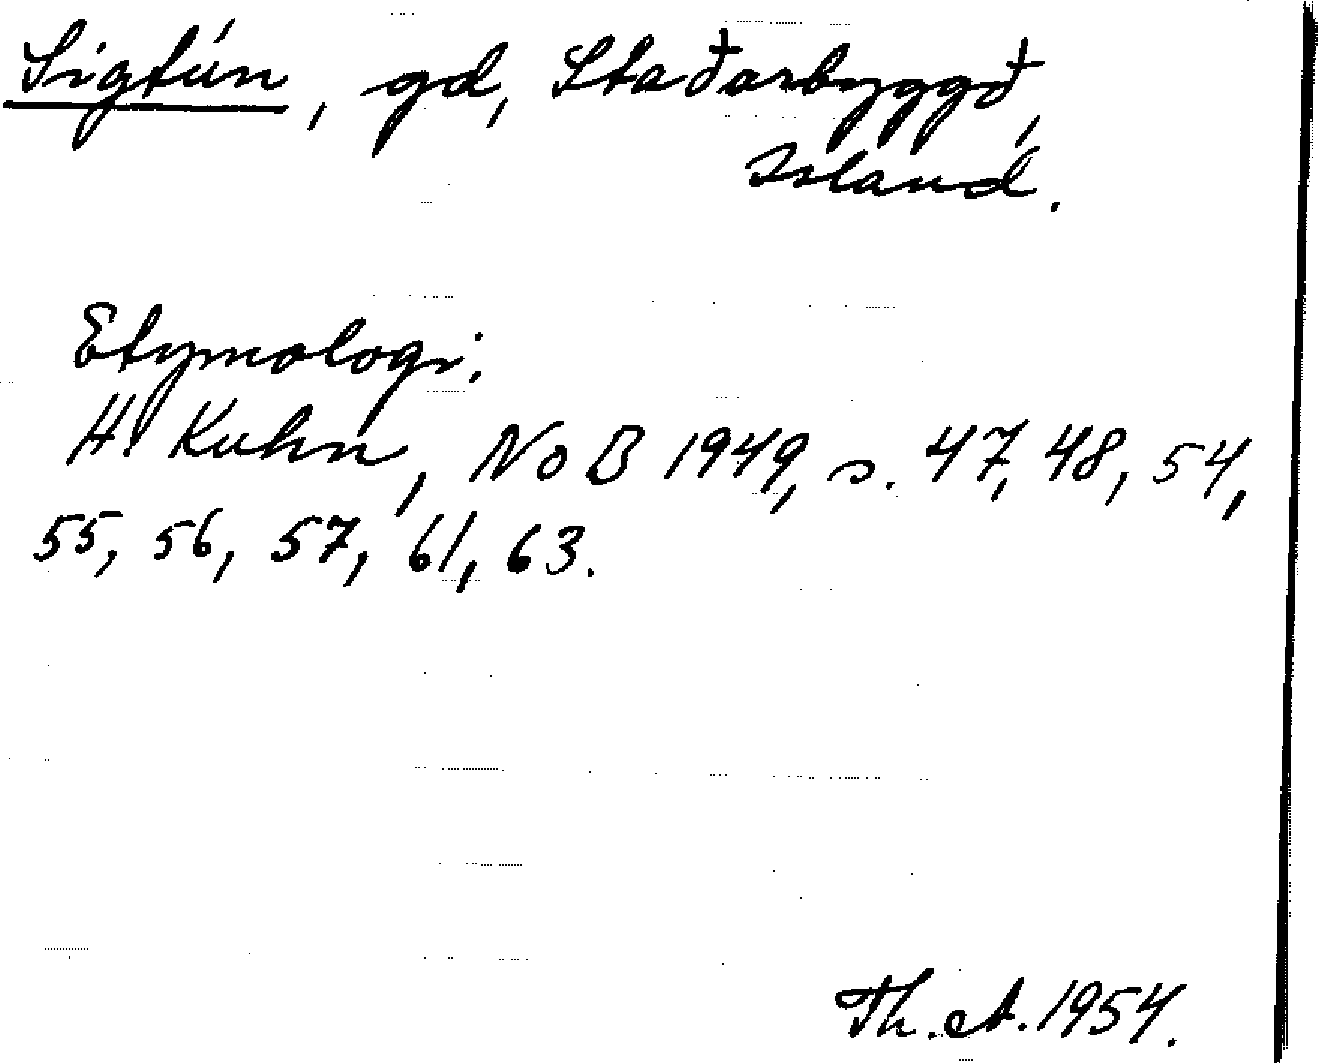 Sigtún, gd, Staðarbyggð,
Island.
Etymologi:
H. Kuhn, NoB 1949, s. 47, 48, 54,
55, 56, 57, 61, 63.
Th. A. 1954.